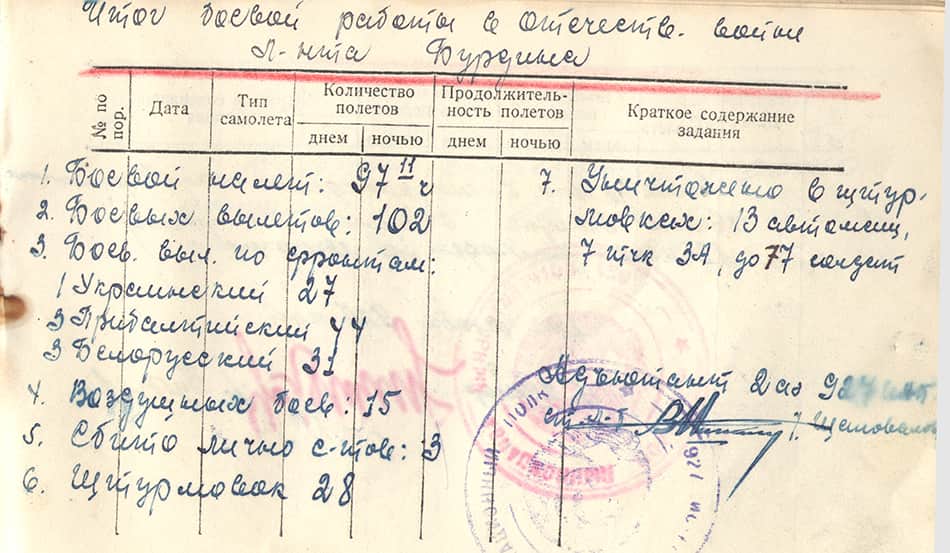 Итог боевой работы в отечеств. войне
Л-нта Бурдина
№ по пор.
Дата
Тип самолета
Количество полетов
днем
ночью
Продолжитель-
ность полетов
днем
ночью
Краткое содержание
задания
1. Боевой налет: 97 11 ч
2. Боевых вылетов: 102
3. Боев. выл. по фронтам:
1 Украинский 27
3 Прибалтийский 44
3 Белорусский 31
4. Воздушных боев: 15
5. Сбито лично с-тов: 3
6. Штурмовок 28
7. Уничтожено в штур-
мовках: 13 автомашин,
7 тчк ЗА, до 77 солдат
Адъютант 2 аэ 927 иап
ст. л-т